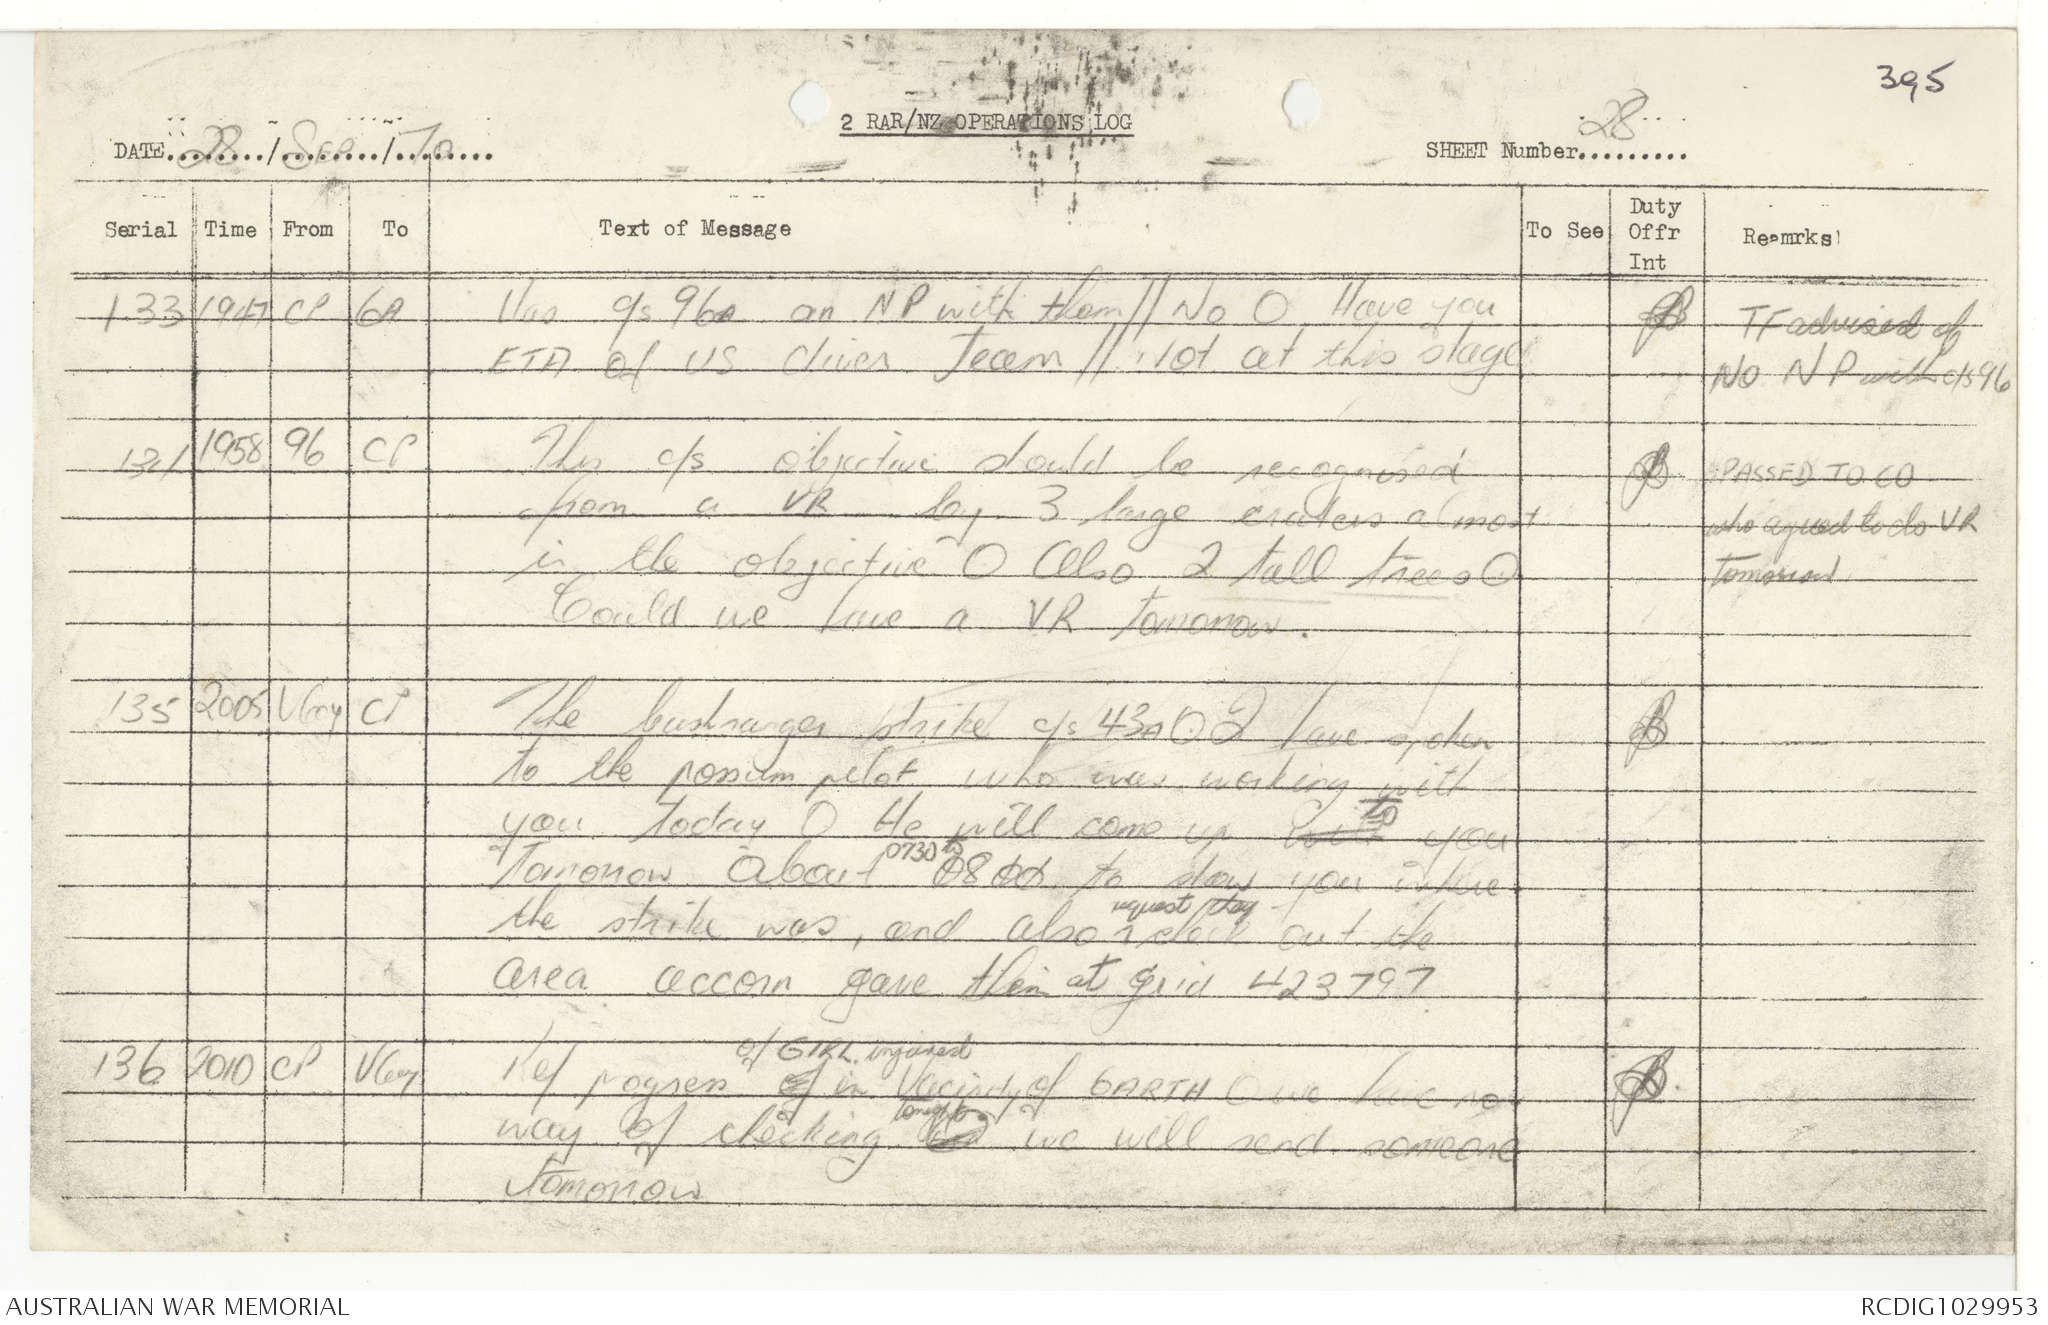 395
2 RAR/NZ OPERATIONS LOG
DATE 28/SEP/70
SHEET Number 28
Serial Time From To Text of Message To See Duty Offr Int Reamrks
133 1947 CP 6A Has c/s 96A an NP with them // No O Have you TF advised of
ETA of US divers Team // Not at this stage NO NP with c/s 96
134 1958 96 CP This c/s objective should be recognised PASSED TO CO
from a VR by 3 large craters almost who agreed to do VR
in the objective O Also 2 tall trees O tomorrow
Could we have a VR tomorrow.
135 2005 CP The bushranger strike c/s 43A O I have spoken
to the possum pilot who was working with
you today O He will come up to you
Tomorrow About 0730 to 0800 to show you where
the strike was, and also request they check out the
area accorn gave them at grid 423797
136 2010 CP Ref progress of GIRL injured in Vacinity of GARTH O we have no
way of checking tonight O we will send someone
tomorrow
AUSTRALIAN WAR MEMORIAL
RCDIG1029953